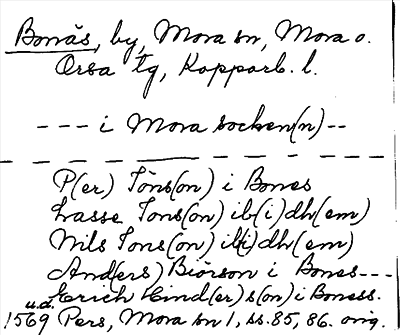 Bonäs, by, Mora sn, Mora o.
Orsa tg, Kopparb. l.
--- i Mora socken(n)--
P(er) Jöns(on) i Bones
Lasse Jons(on) ib(i)dh(em)
Nils Jons(on) ib(i)dh(em)
And(ers) Biörson i Bones---
Erich Hind(er)s(on) i Boness.
u.å.
1569 Pers, Mora sn 1, ss. 85, 86. orig.